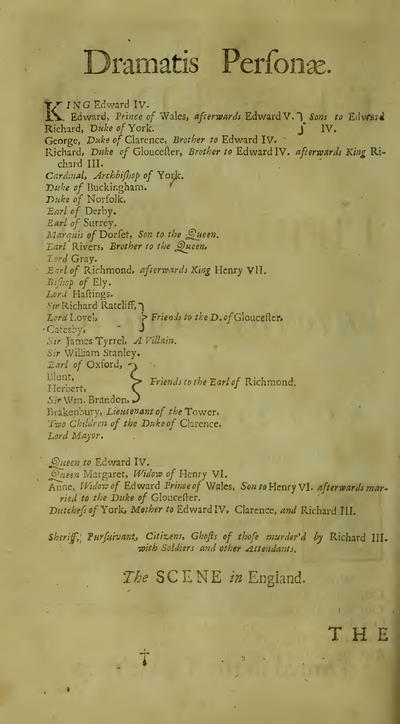 Dramatis Perſonæ.
KING Edward IV.
Edward, Prince of Wales, afterwards Edward V. } Sons to Edward
Richard, Duke of York. } IV.
George, Duke of Clarence, Brother to Edward IV.
Richard, Duke of Glouceſter, Brother to Edward IV. afterwards King Ri-
chard III.
Cardinal, Archbiſhop of York.
Duke of Buckingham.
Duke of Norfolk.
Earl of Derby.
Earl of Surrey.
Marquis of Dorſet, Son to the Queen.
Earl Rivers, Brother to the Queen.
Lord Gray.
Earl of Richmond, afterwards King Henry VII.
Biſhop of Ely.
Lord Haſtings.
Sir Richard Ratcliff,
Lord Lovel, } Friends to the D. of Glouceſter.
Catesby,
Sir James Tyrrel, A Villain.
Sir William Stanley.
Earl of Oxford,
Blunt, } Friends to the Earl of Richmond.
Herbert,
Sir Wm. Brandon,
Brakenbury, Lieutenant of the Tower.
Two Children of the Duke of Clarence.
Lord Mayor.
Queen to Edward IV.
Queen Margaret, Widow of Henry VI.
Anne, Widow of Edward Prince of Wales, Son to Henry VI. afterwards mar-
ried to the Duke of Glouceſter.
Dutcheſs of York, Mother to Edward IV, Clarence, and Richard III.
Sheriff, Purſuivant, Citizens, Ghoſts of thoſe murder'd by Richard III.
with Soldiers and other Attendants.
The SCENE in England.
THE
†